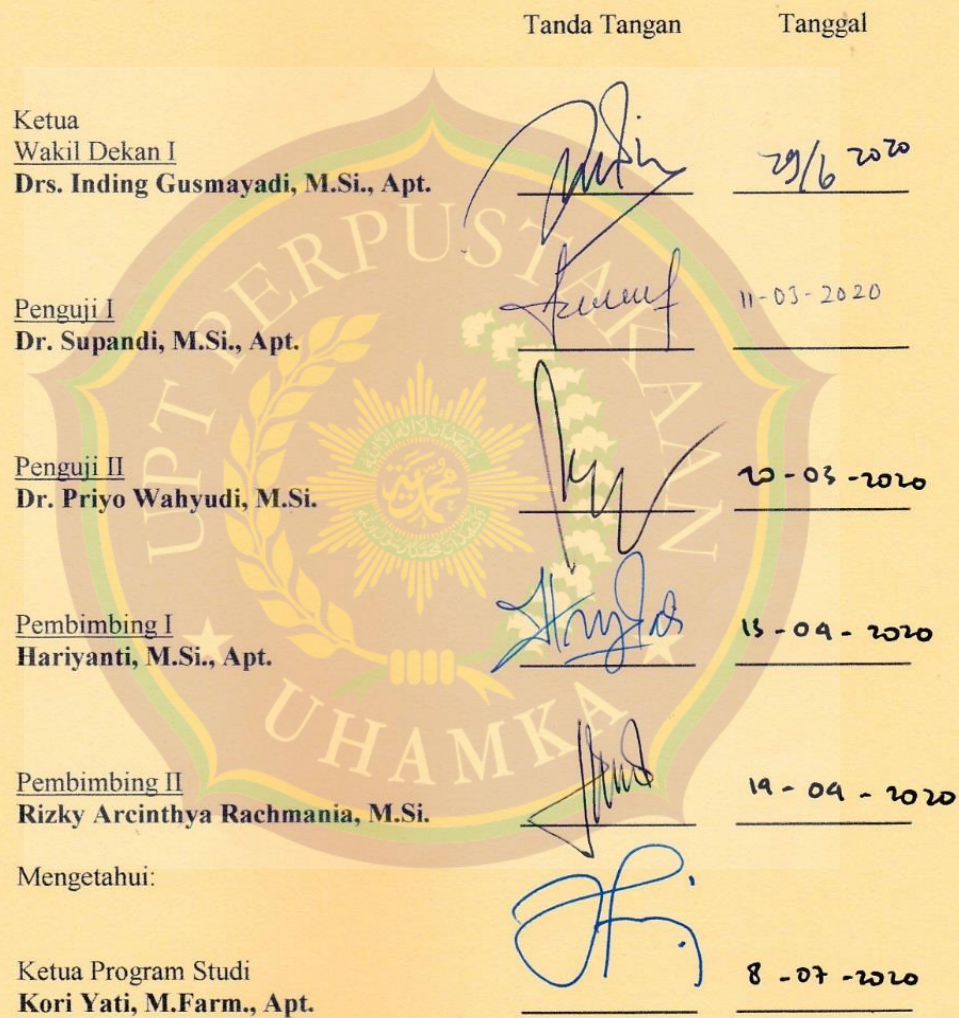 Tanda Tangan Tanggal
Ketua
Wakil Dekan I
Drs. Inding Gusmayadi, M.Si., Apt. 29/6 2020
Penguji I
Dr. Supandi, M.Si., Apt. 11-03-2020
Penguji II
Dr. Priyo Wahyudi, M.Si. 20-03-2020
Pembimbing I
Hariyanti, M.Si., Apt. 15-04-2020
Pembimbing II
Rizky Arcinthya Rachmania, M.Si. 14-04-2020
Mengetahui:
Ketua Program Studi
Kori Yati, M.Farm., Apt. 8-07-2020
UPT PERPUSTAKAAN
UHAMKA